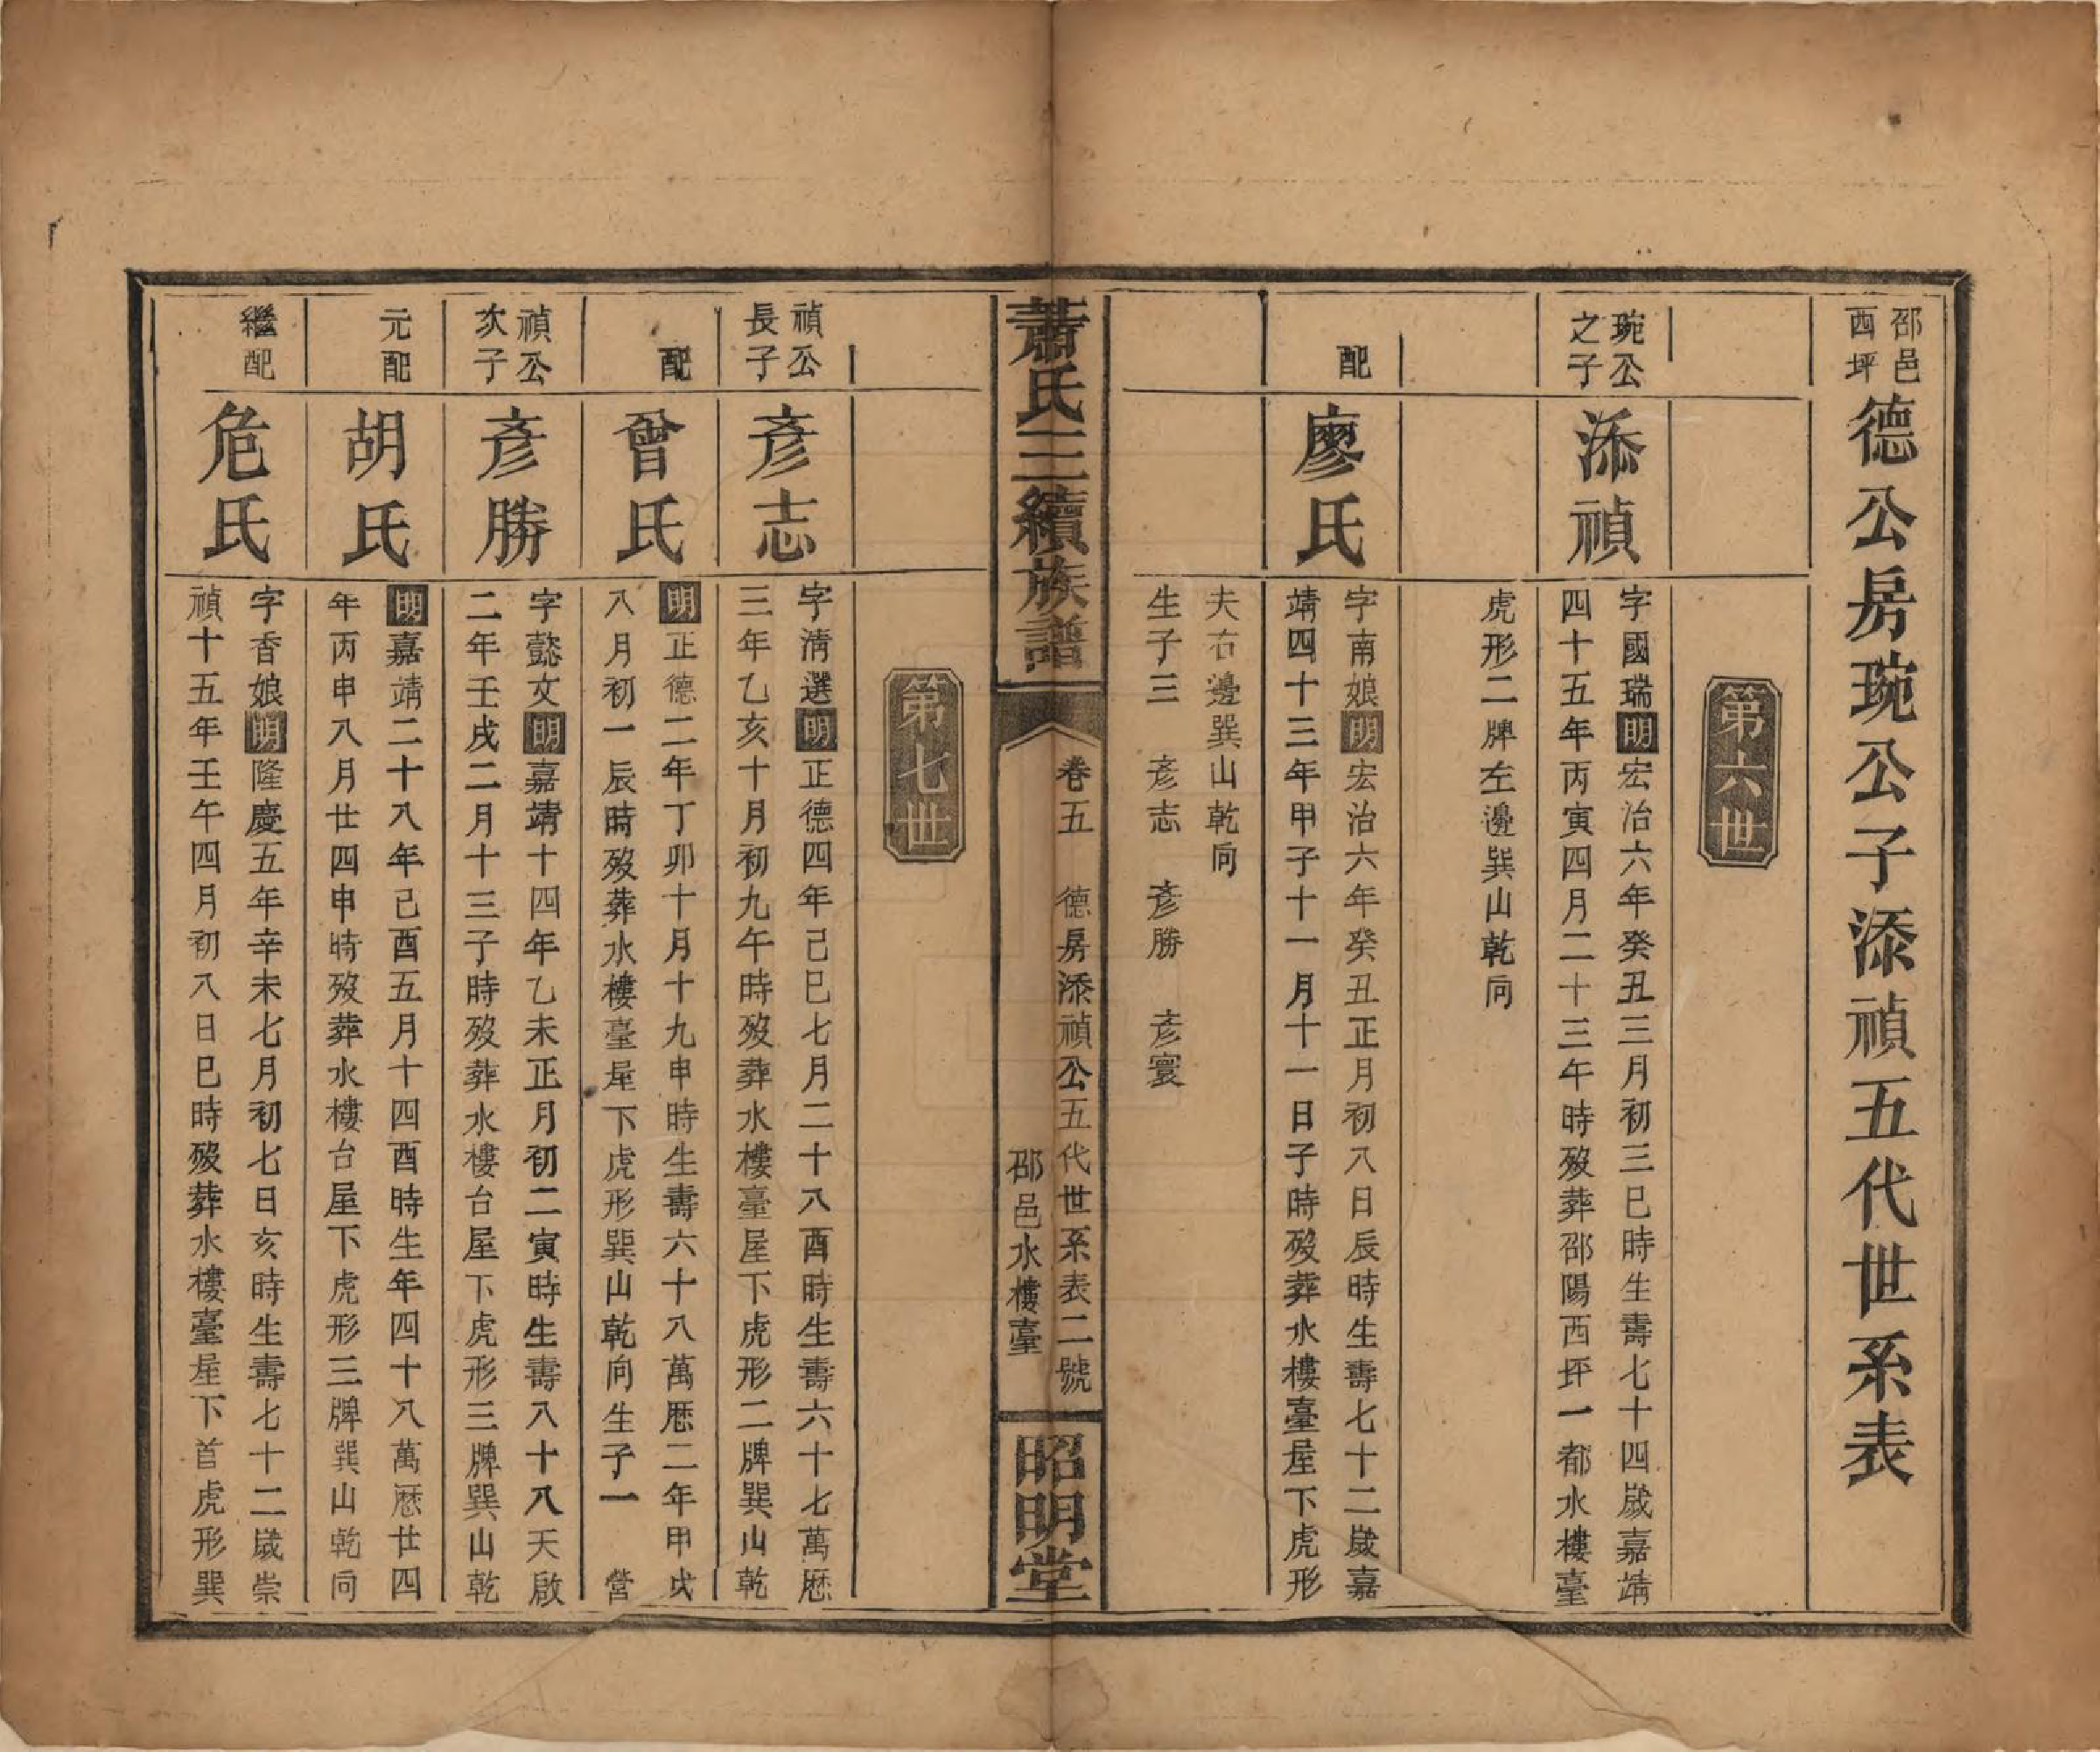 邵邑
西坪
德公房琬公子添禎五代世系表
第六世
琬公
之子
添禎
字國瑞明宏治六年癸丑三月初三巳時生壽七十四歲嘉靖
四十五年丙寅四月二十三午時歿葬邵陽西坪一都水樓臺
虎形二牌左邊巽山乾向
配
廖氏
字南娘明宏治六年癸丑正月初八日辰時生壽七十二歲嘉
靖四十三年甲子十一月十一日子時歿葬水樓臺屋下虎形
夫右邊巽山乾向
生子三 彥志 彥勝 彥寰
蕭氏三續族譜
卷五 德房添禎公五代世系表二號
邵邑水樓臺
昭明堂
第七世
禎公
長子
彥志
字清選明正德四年己巳七月二十八酉時生壽六十七萬歷
三年乙亥十月初九午時歿葬水樓臺屋下虎形二牌巽山乾
配
曾氏
明正德二年丁卯十月十九申時生壽六十八萬歷二年甲戌
八月初一辰時歿葬水樓臺屋下虎形巽山乾向生子一 營
禎公
次子
彥勝
字懿文明嘉靖十四年乙未正月初二寅時生壽八十八天啟
二年壬戌二月十三子時歿葬水樓台屋下虎形三牌巽山乾
元配
胡氏
明嘉靖二十八年己酉五月十四酉時生年四十八萬歷廿四
年丙申八月廿四申時歿葬水樓台屋下虎形三牌巽山乾向
繼配
危氏
字香娘明隆慶五年辛未七月初七日亥時生壽七十二歲崇
禎十五年壬午四月初八日巳時歿葬水樓臺屋下首虎形巽